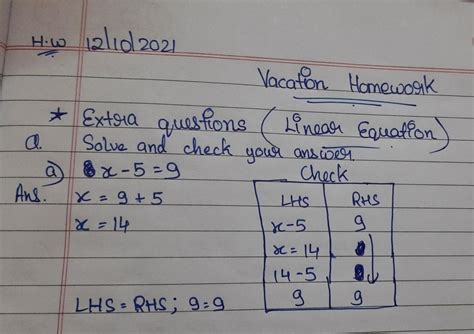 H.W 12/10/2021
Vacation Homework
* Extra questions (Linear Equation)
Q. Solve and check your answer.
a) x-5=9
Check
Ans. x = 9+5
x = 14
LHS RHS
x-5 9
x=14
14-5
9 9
LHS = RHS ; 9=9